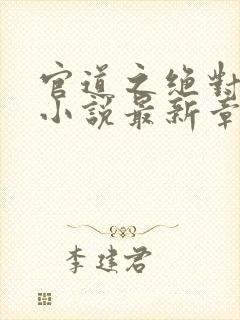 官道之绝对
小说最新章
李建君